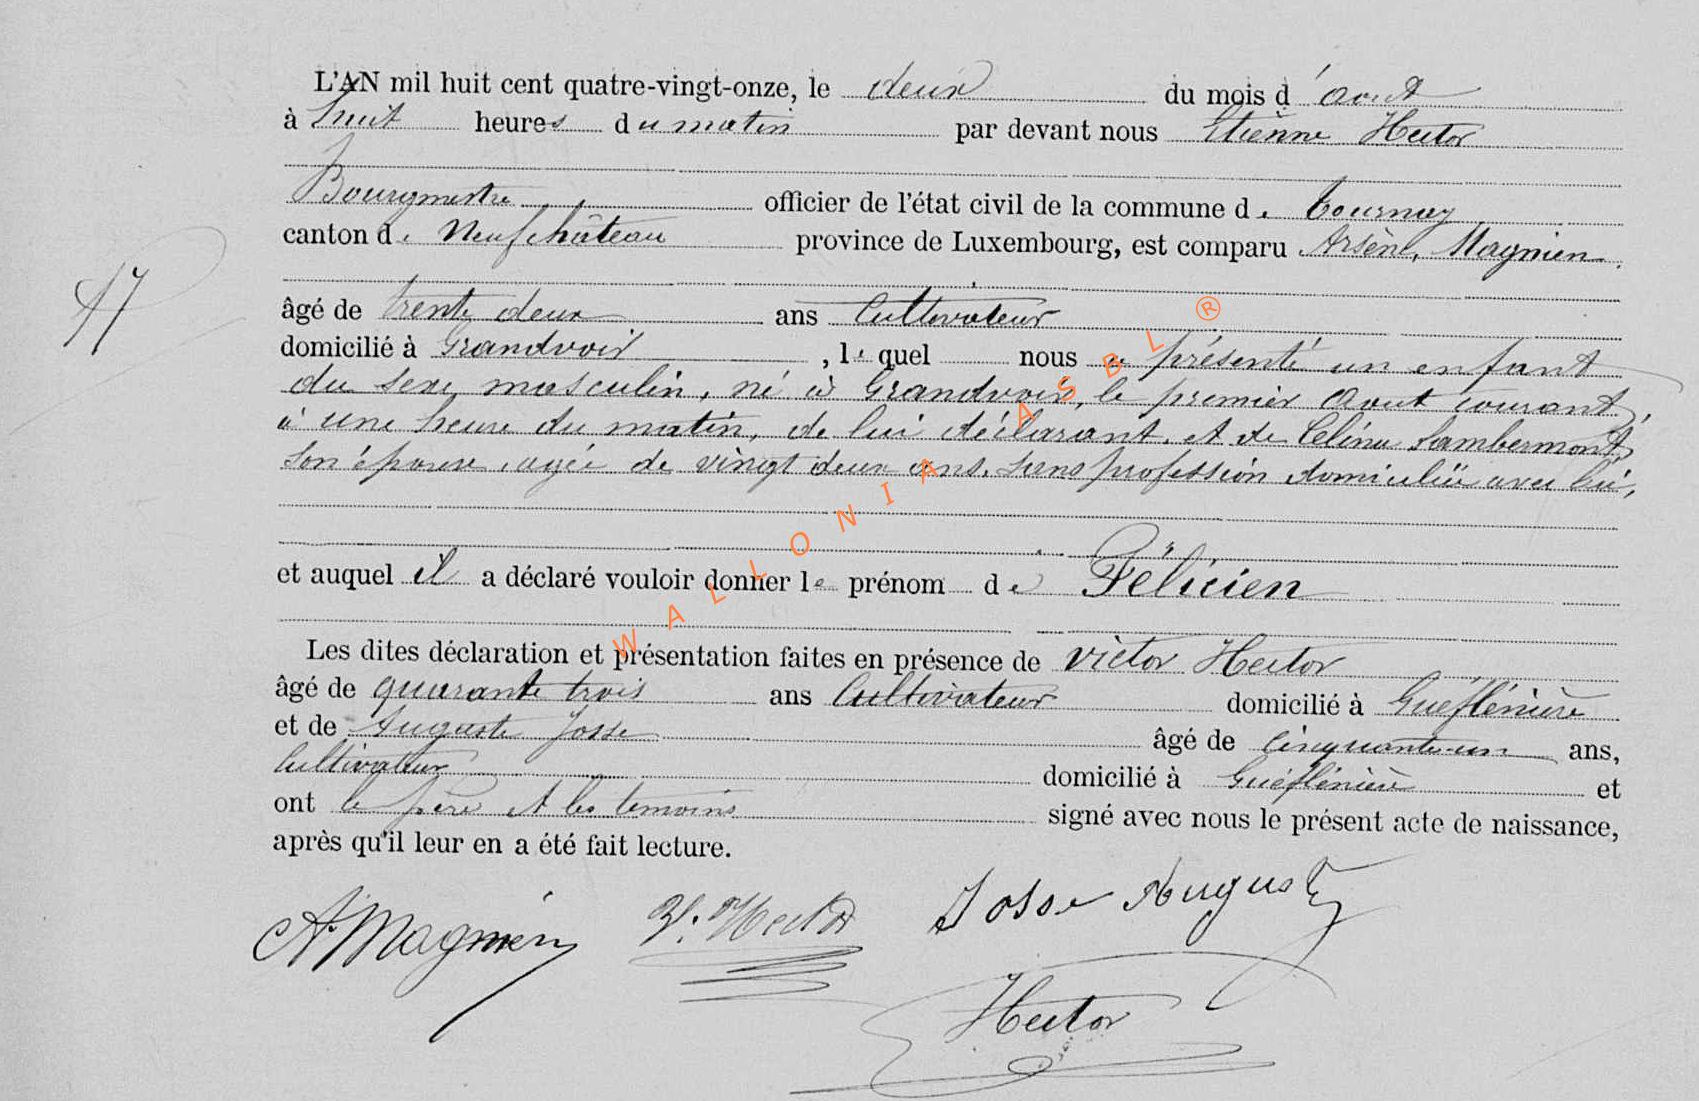 L'AN mil huit cent quatre-vingt-onze, le deux du mois d'aout
à huit heures du matin par devant nous Etienne Hector
Bourgmestre officier de l'état civil de la commune de Tournay
canton de Neufchâteau province de Luxembourg, est comparu Arsène, Magnien.
17
âgé de trente deux ans Cultivateur
domicilié à Grandvoir, lequel nous a présenté un enfant
du sexe masculin, né à Grandvoir, le premier Aout courant,
à une heure du matin, de lui déclarant, et de Célina Lambermont,
son épouse, agée de vingt deux ans, sans profession domiciliée avec lui,
et auquel il a déclaré vouloir donner le prénom de Félicien
Les dites déclaration et présentation faites en présence de Victor Hector
âgé de quarante trois ans Cultivateur domicilié à Gueflénière
et de Auguste Josse âgé de cinquante-un ans,
Cultivateur domicilié à Gueflénière et
ont le père et les temoins signé avec nous le présent acte de naissance,
après qu'il leur en a été fait lecture.
A. Magnien V. Hector Josse Auguste
Hector
WALLONIA ASBL ®